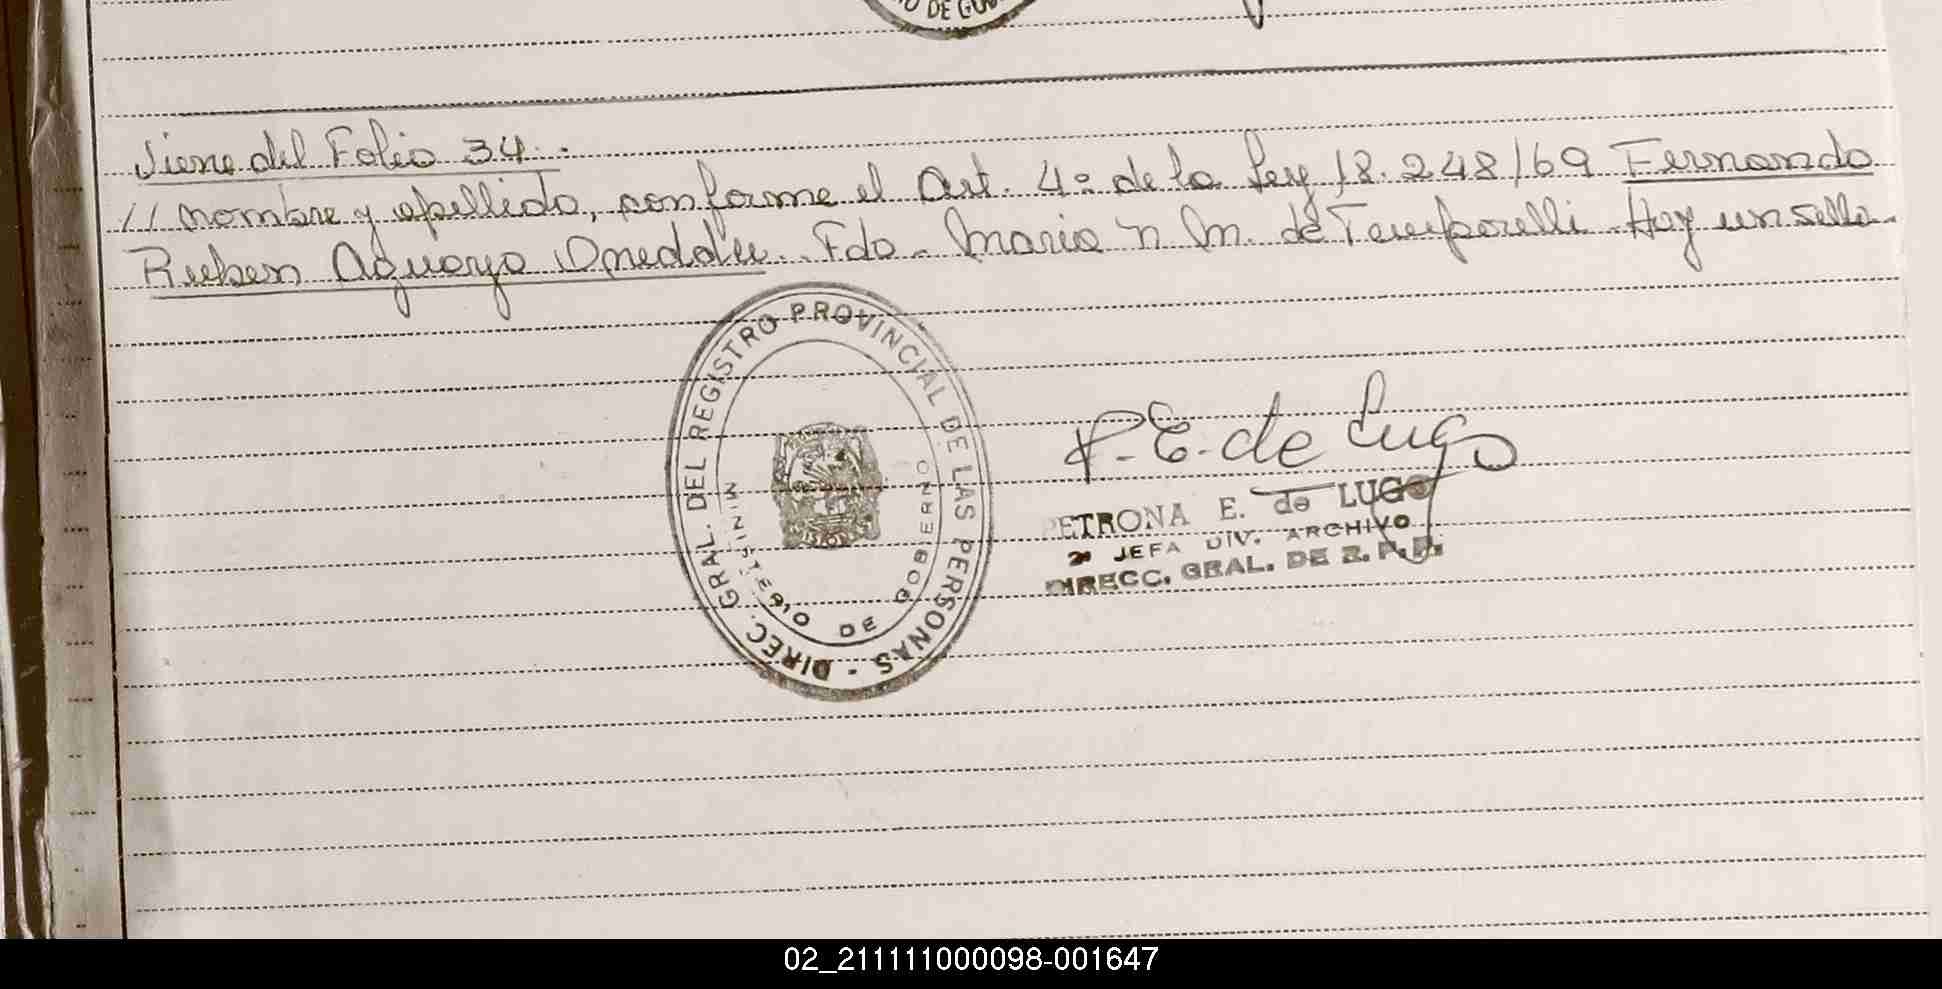 O DE GOB
Viene del Folio 34.-
// nombre y apellido, conforme el Art. 4º de la Ley 18.248/69 Fernando
Ruben Aguayo Omeddu. Fdo. Maria N M. de Temporelli. Hay un sello.
DIREC. GRAL. DEL REGISTRO PROVINCIAL DE LAS PERSONAS -
MINISTERIO DE GOBIERNO
P. E. de Lugo
PETRONA E. de LUGO
2ª JEFA DIV. ARCHIVO
DIRECC. GRAL. DE R. P. P.
02_211111000098-001647